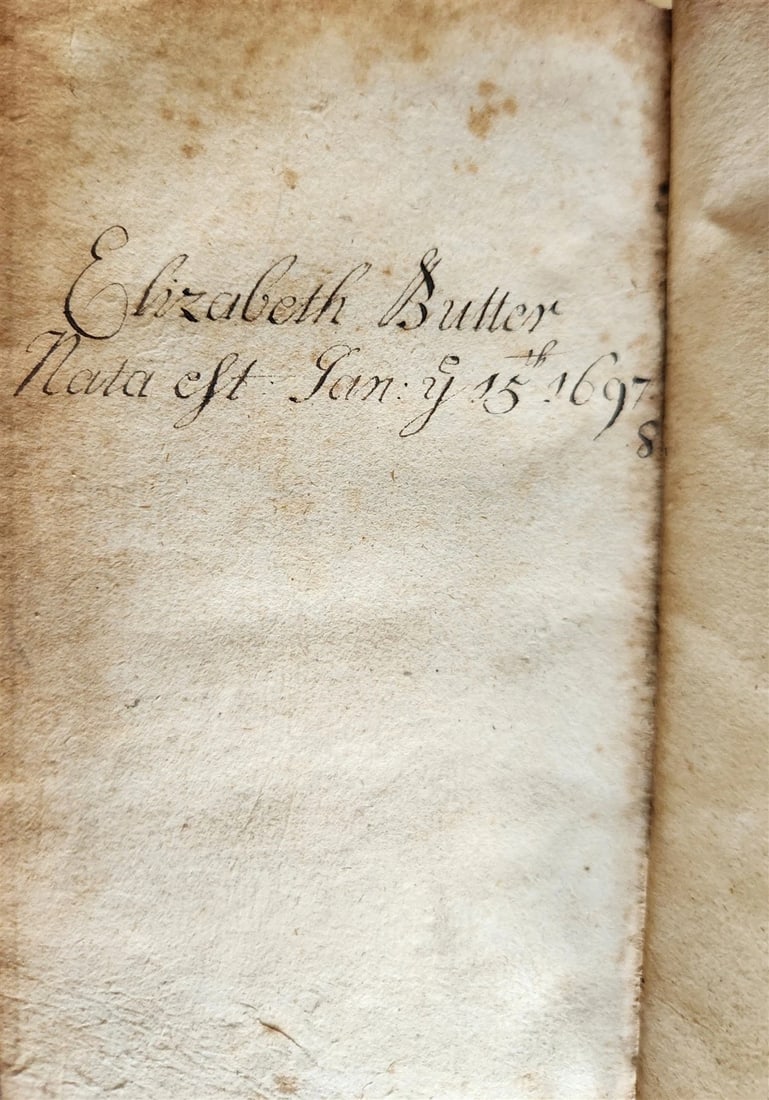 Elizabeth Butter
Nata est Jan: yͤ 15th 1697
8